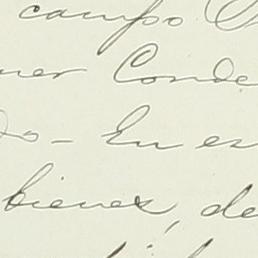 campo.
ner Conde
do - En es
bienes, de